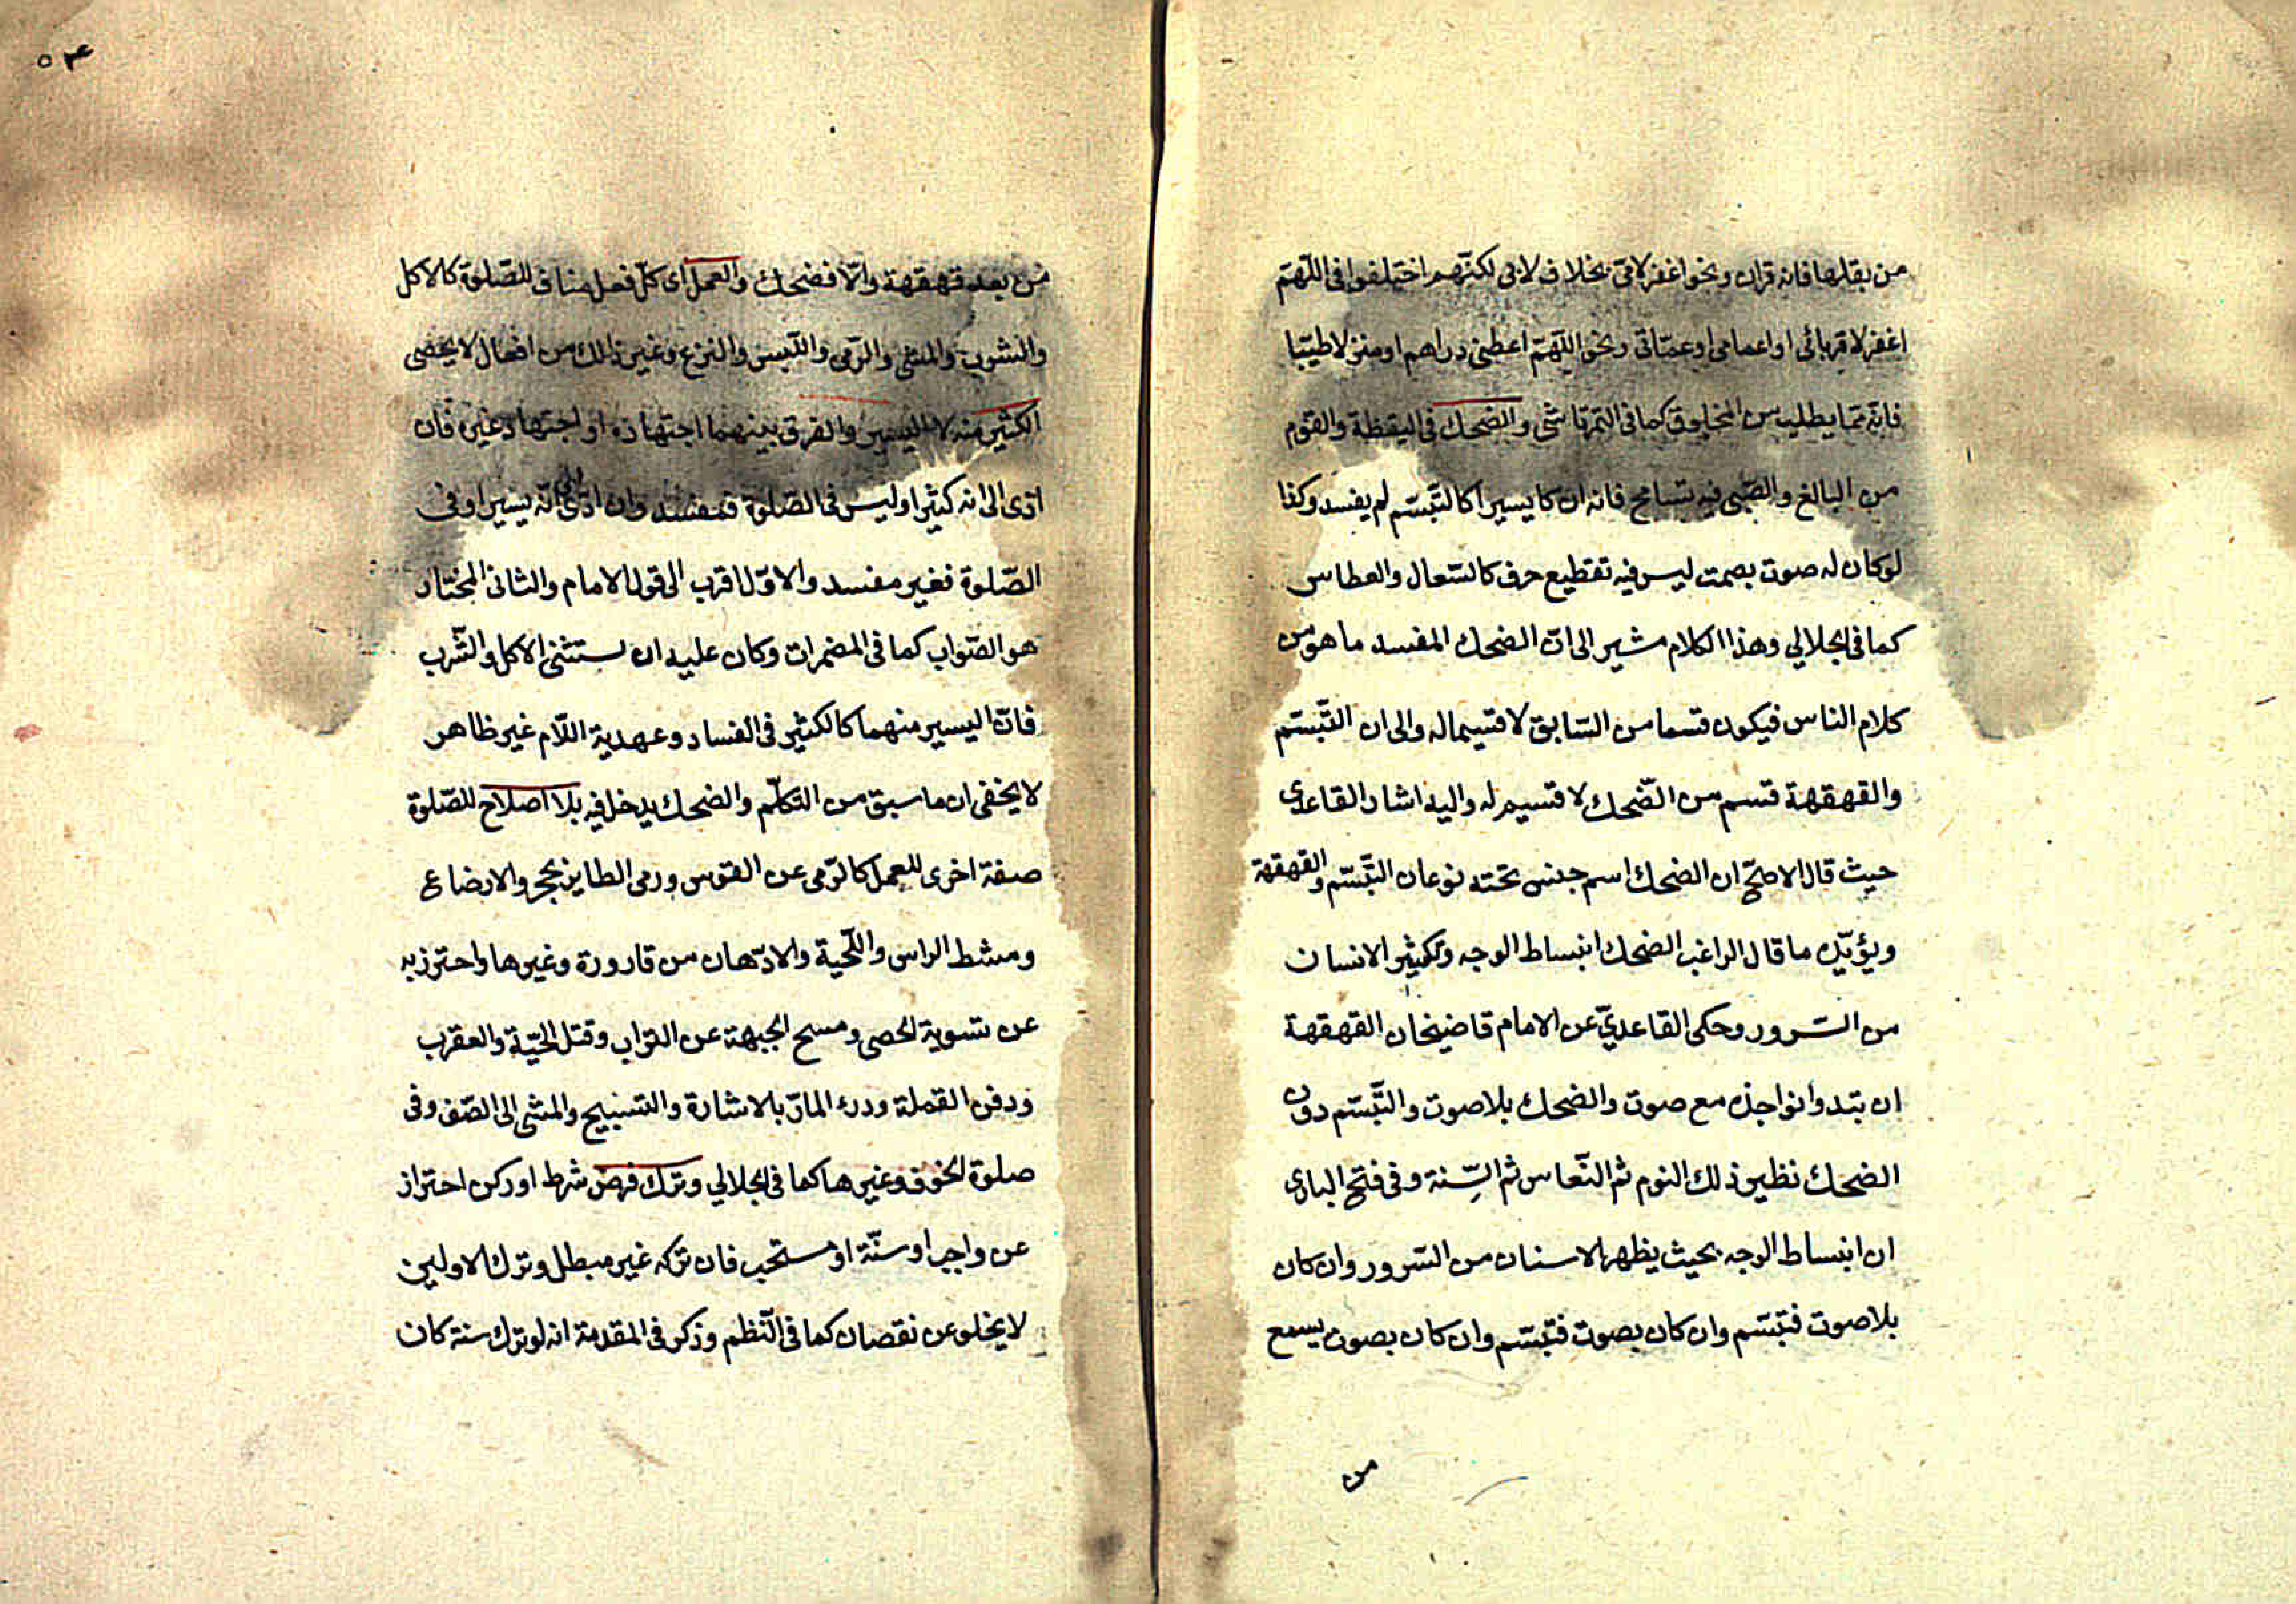 من بقلها فانه قران ونحو اغفر لامي بخلاف لابي لكنهم اختلفوا في اللهم
اغفر لاقربائي او اعمامي او عماتي ونحو اللهم اعطني دراهم او منزلا طيبا
فانه مما يطلب من المخلوق كما في التمرتاشي والضحك في اليقظة والنوم
من البالغ والصبي فيه تسامح فانه ان كا يسيرا كالتبسم لم يفسد وكذا
لو كان له صوت بصمت ليس فيه تقطيع حرف كالسعال والعطاس
كما في الجلالي وهذا الكلام مشير الى ان الضحك المفسد ما هو من
كلام الناس فيكون قسما من السابق لا قسيما له والى ان التبسم
والقهقهة قسم من الضحك لا قسيم له واليه اشار القاعدي
حيث قال الاصح ان الضحك اسم جنس تحته نوعان التبسم والقهقهة
ويؤيده ما قال الراغب الضحك انبساط الوجه وتكثير الانسان
من السرور وحكى القاعدي عن الامام قاضيخان القهقهة
ان تبدو انواجذه مع صوت والضحك بلا صوت والتبسم دون
الضحك نظير ذلك النوم ثم النعاس ثم السنة وفي فتح الباري
ان انبساط الوجه بحيث يظهر الاسنان من السرور وان كان
بلا صوت فتبسم وان كان بصوت فتبسم وان كان بصوت يسمع
من
٥٤
من بعد قهقهة والا فضحك والعمل اى كل فعل مناف للصلوة كالاكل
والشرب والمشي والرمي واللبس والنزع وغير ذلك من افعال لا يحصى
الكثير منه لا اليسير والفرق بينهما اجتهاده او اجتهاد غيره فان
ادى الى انه كثير او ليس في الصلوة فمفسد وان ادى الى انه يسير او في
الصلوة فغير مفسد والاول اقرب الى قول الامام والثاني المختار
هو الصواب كما في المضمرات وكان عليه ان يستثنى الاكل والشرب
فان اليسير منهما كالكثير في الفساد وعهدية اللام غير ظاهر
لا يخفى ان ما سبق من التكلم والضحك يدخل فيه بلا اصلاح للصلوة
صفة اخرى للعمل كالرمي عن القوس ورمى الطاير بحجر والارضاع
ومشط الراس واللحية والادهان من قارورة وغيرها واحترز به
عن تسوية الحصى ومسح الجبهة عن التراب وقتل الحية والعقرب
ودفن القملة ودرء المار بالاشارة والتسبيح والمشي الى الصف وفي
صلوة الخوف وغيرها كما في الجلالي وترك فرض شرط او ركن احتراز
عن واجب او سنة او مستحب فان تركه غير مبطل وترك الاولين
لا يخلو عن نقصان كما في النظم وذكر في المقدمة انه لو ترك سنة كان